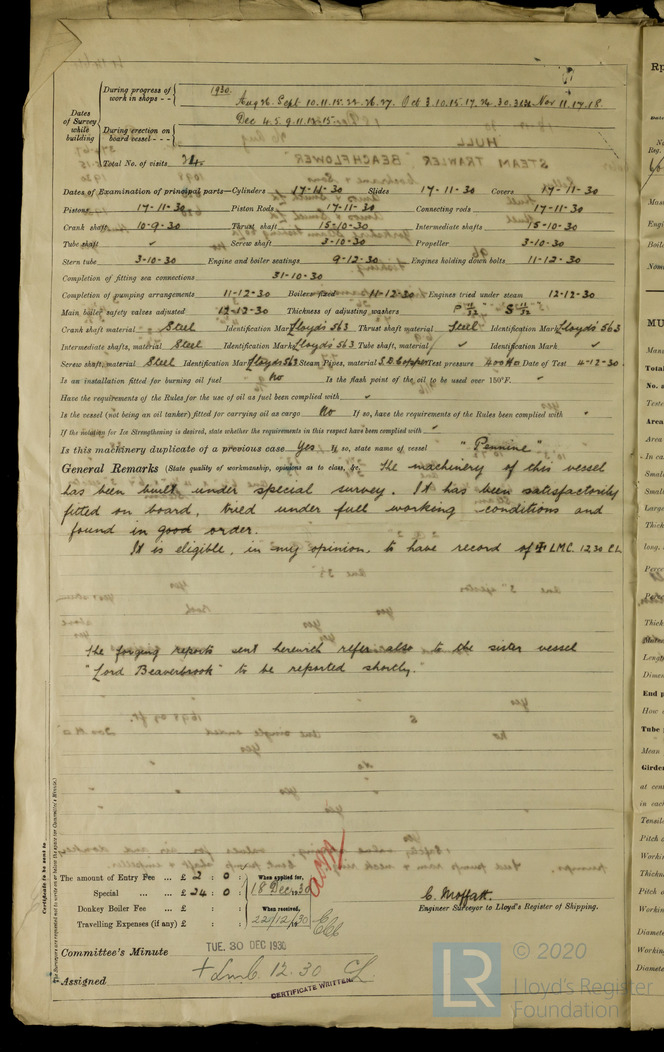 During progress of work in shops - - 1930. Aug 26. Sept 10.11.15.22.26.27. Oct 3.10.15.17.24.30.31 Nov 11.17.18.
Dates of Survey while building
During erection on board vessel - - - Dec 4.5.9.11.12.15.
Total No. of visits 24.
Dates of Examination of principal parts—Cylinders 17-11-30 Slides 17-11-30 Covers 17-11-30
Pistons 17-11-30 Piston Rods 17-11-30 Connecting rods 17-11-30
Crank shaft 10-9-30 Thrust shaft 15-10-30 Intermediate shafts 15-10-30
Tube shaft ✓ Screw shaft 3-10-30 Propeller 3-10-30
Stern tube 3-10-30 Engine and boiler seatings 9-12-30 Engines holding down bolts 11-12-30
Completion of fitting sea connections 31-10-30
Completion of pumping arrangements 11-12-30 Boilers fixed 11-12-30 Engines tried under steam 12-12-30
Main boiler safety valves adjusted 12-12-30 Thickness of adjusting washers P 11/32 S 11/32
Crank shaft material Steel Identification Mark Lloyds 563 Thrust shaft material Steel Identification Mark Lloyds 563
Intermediate shafts, material Steel Identification Marks Lloyds 563 Tube shaft, material ✓ Identification Mark ✓
Screw shaft, material Steel Identification Mark Lloyds 563 Steam Pipes, material S.D. Copper Test pressure 400 Date of Test 4-12-30.
Is an installation fitted for burning oil fuel No Is the flash point of the oil to be used over 150°F. ✓
Have the requirements of the Rules for the use of oil as fuel been complied with ✓
Is the vessel (not being an oil tanker) fitted for carrying oil as cargo No If so, have the requirements of the Rules been complied with ✓
If the notation for Ice Strengthening is desired, state whether the requirements in this respect have been complied with ✓
Is this machinery duplicate of a previous case Yes If so, state name of vessel "Pennine"
General Remarks (State quality of workmanship, opinions as to class, &c. The machinery of this vessel
has been built under special survey. It has been satisfactorily
fitted on board, tried under full working conditions and
found in good order.
It is eligible, in my opinion, to have record of ✠ L.M.C. 12.30 C.L.
The forging reports sent herewith refer also to the sister vessel
"Lord Beaverbrook" to be reported shortly.
Certificate to be sent to
(The Surveyors are requested not to write on or below the space for Committee's Minute.)
The amount of Entry Fee ... £ 2 : 0 : When applied for,
Special ... ... £ 24 : 0 : 18 Dec. 30
Donkey Boiler Fee ... £ : : When received,
Travelling Expenses (if any) £ : : 22/12/30
C. Moffatt.
Engineer Surveyor to Lloyd's Register of Shipping.
Committee's Minute TUE. 30 DEC 1930
Assigned + Lmb 12.30 CL
CERTIFICATE WRITTEN.
LR © 2020
Lloyd's Register
Foundation